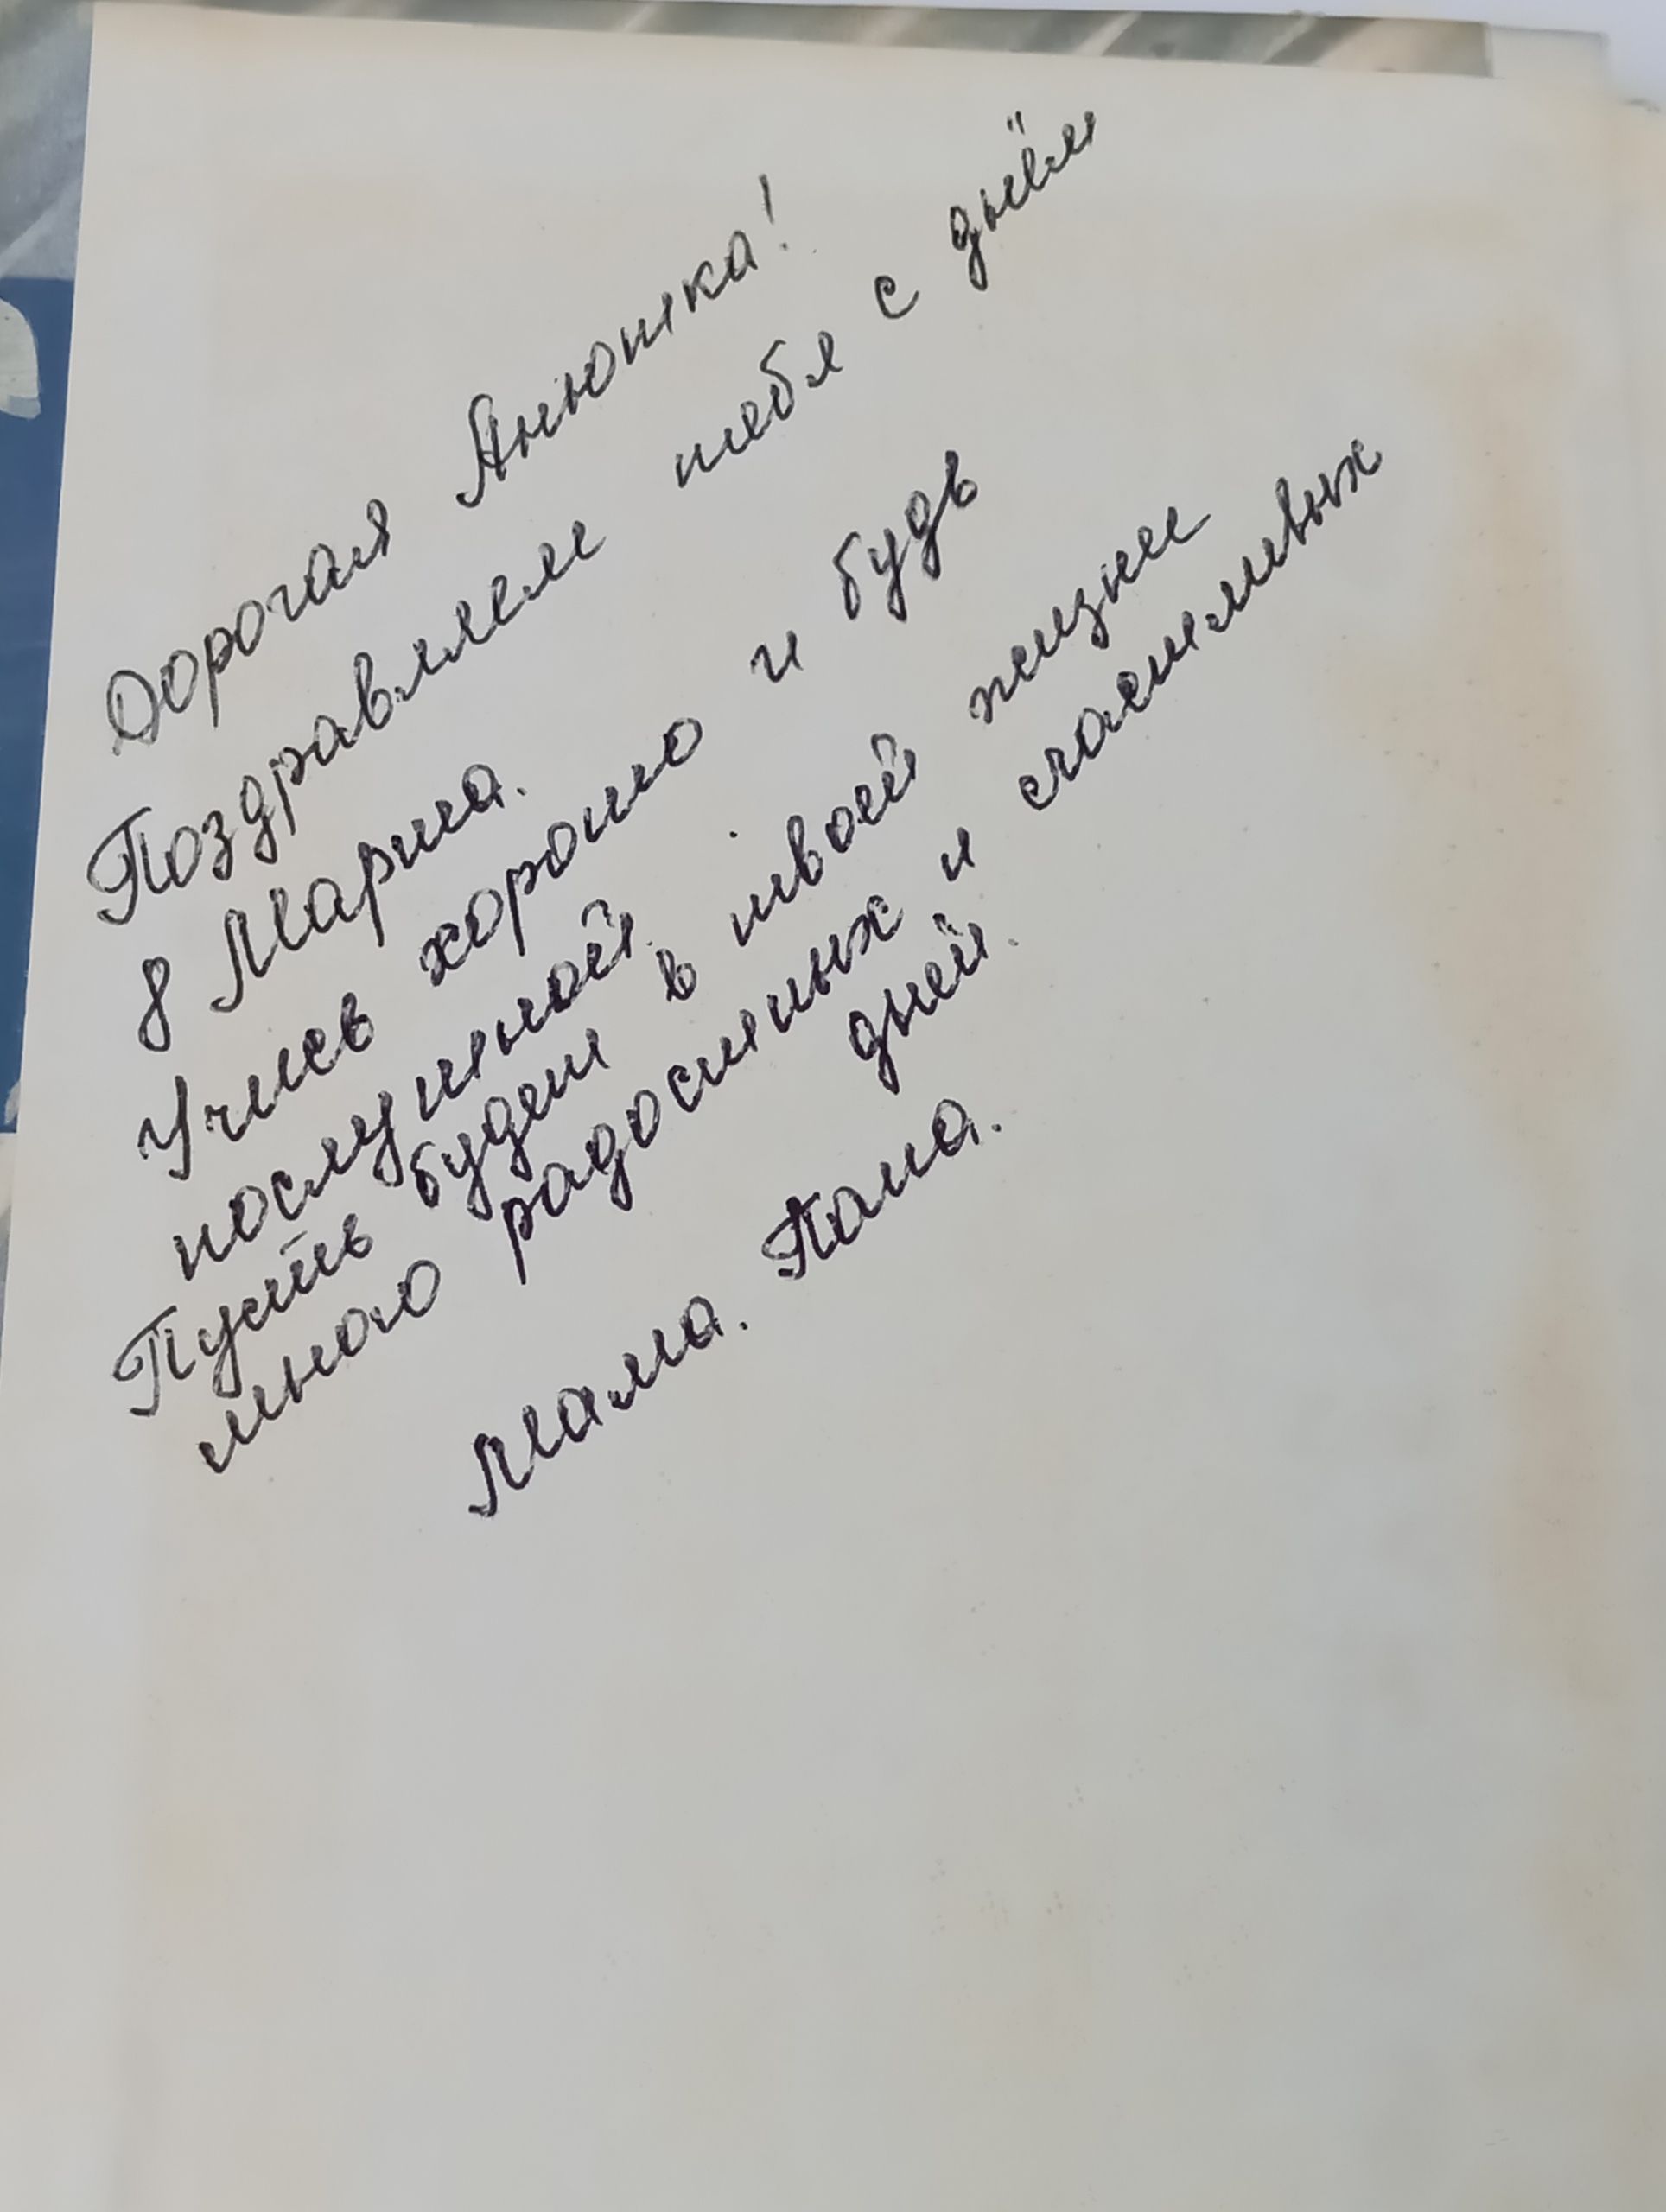 Дорогая Анюшка!
Поздравляем тебя с днём
8 Марта.
Учись хорошо и будь
послушной.
Пусть будет в твоей жизни
много радостных и счастливых
дней.
Мама. Папа.